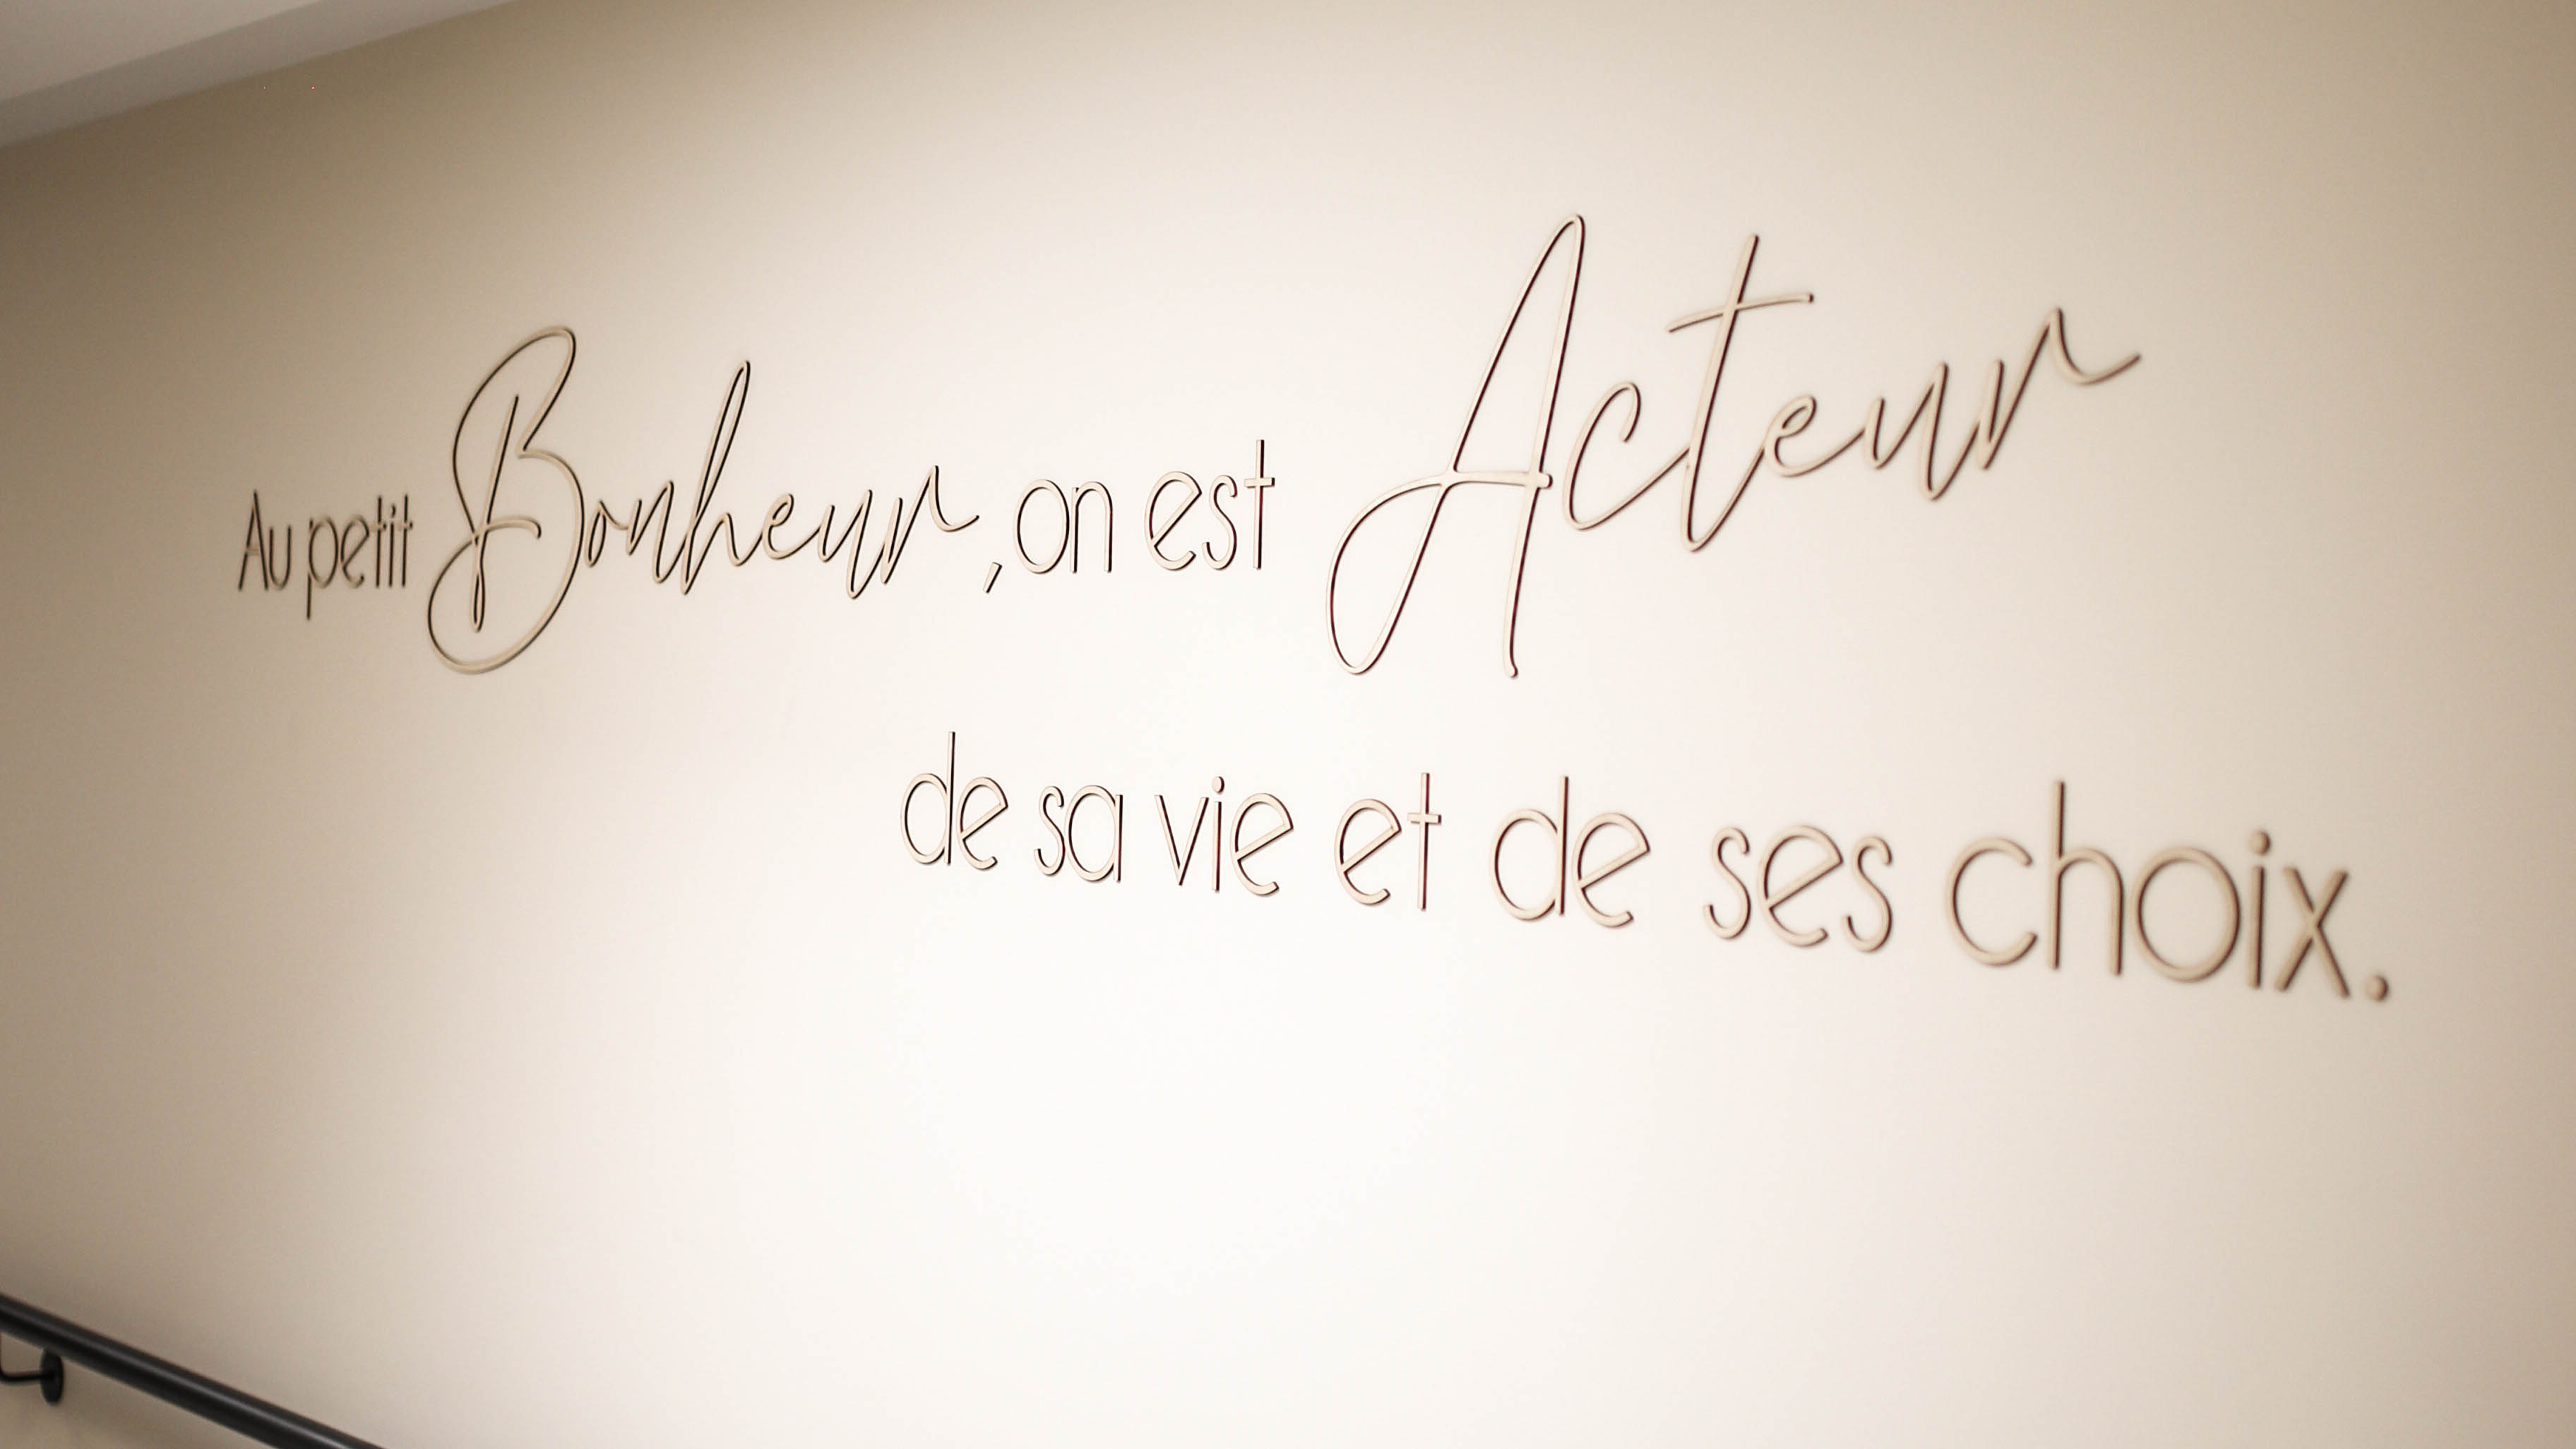 Au petit Bonheur, on est Acteur
de sa vie et de ses choix.